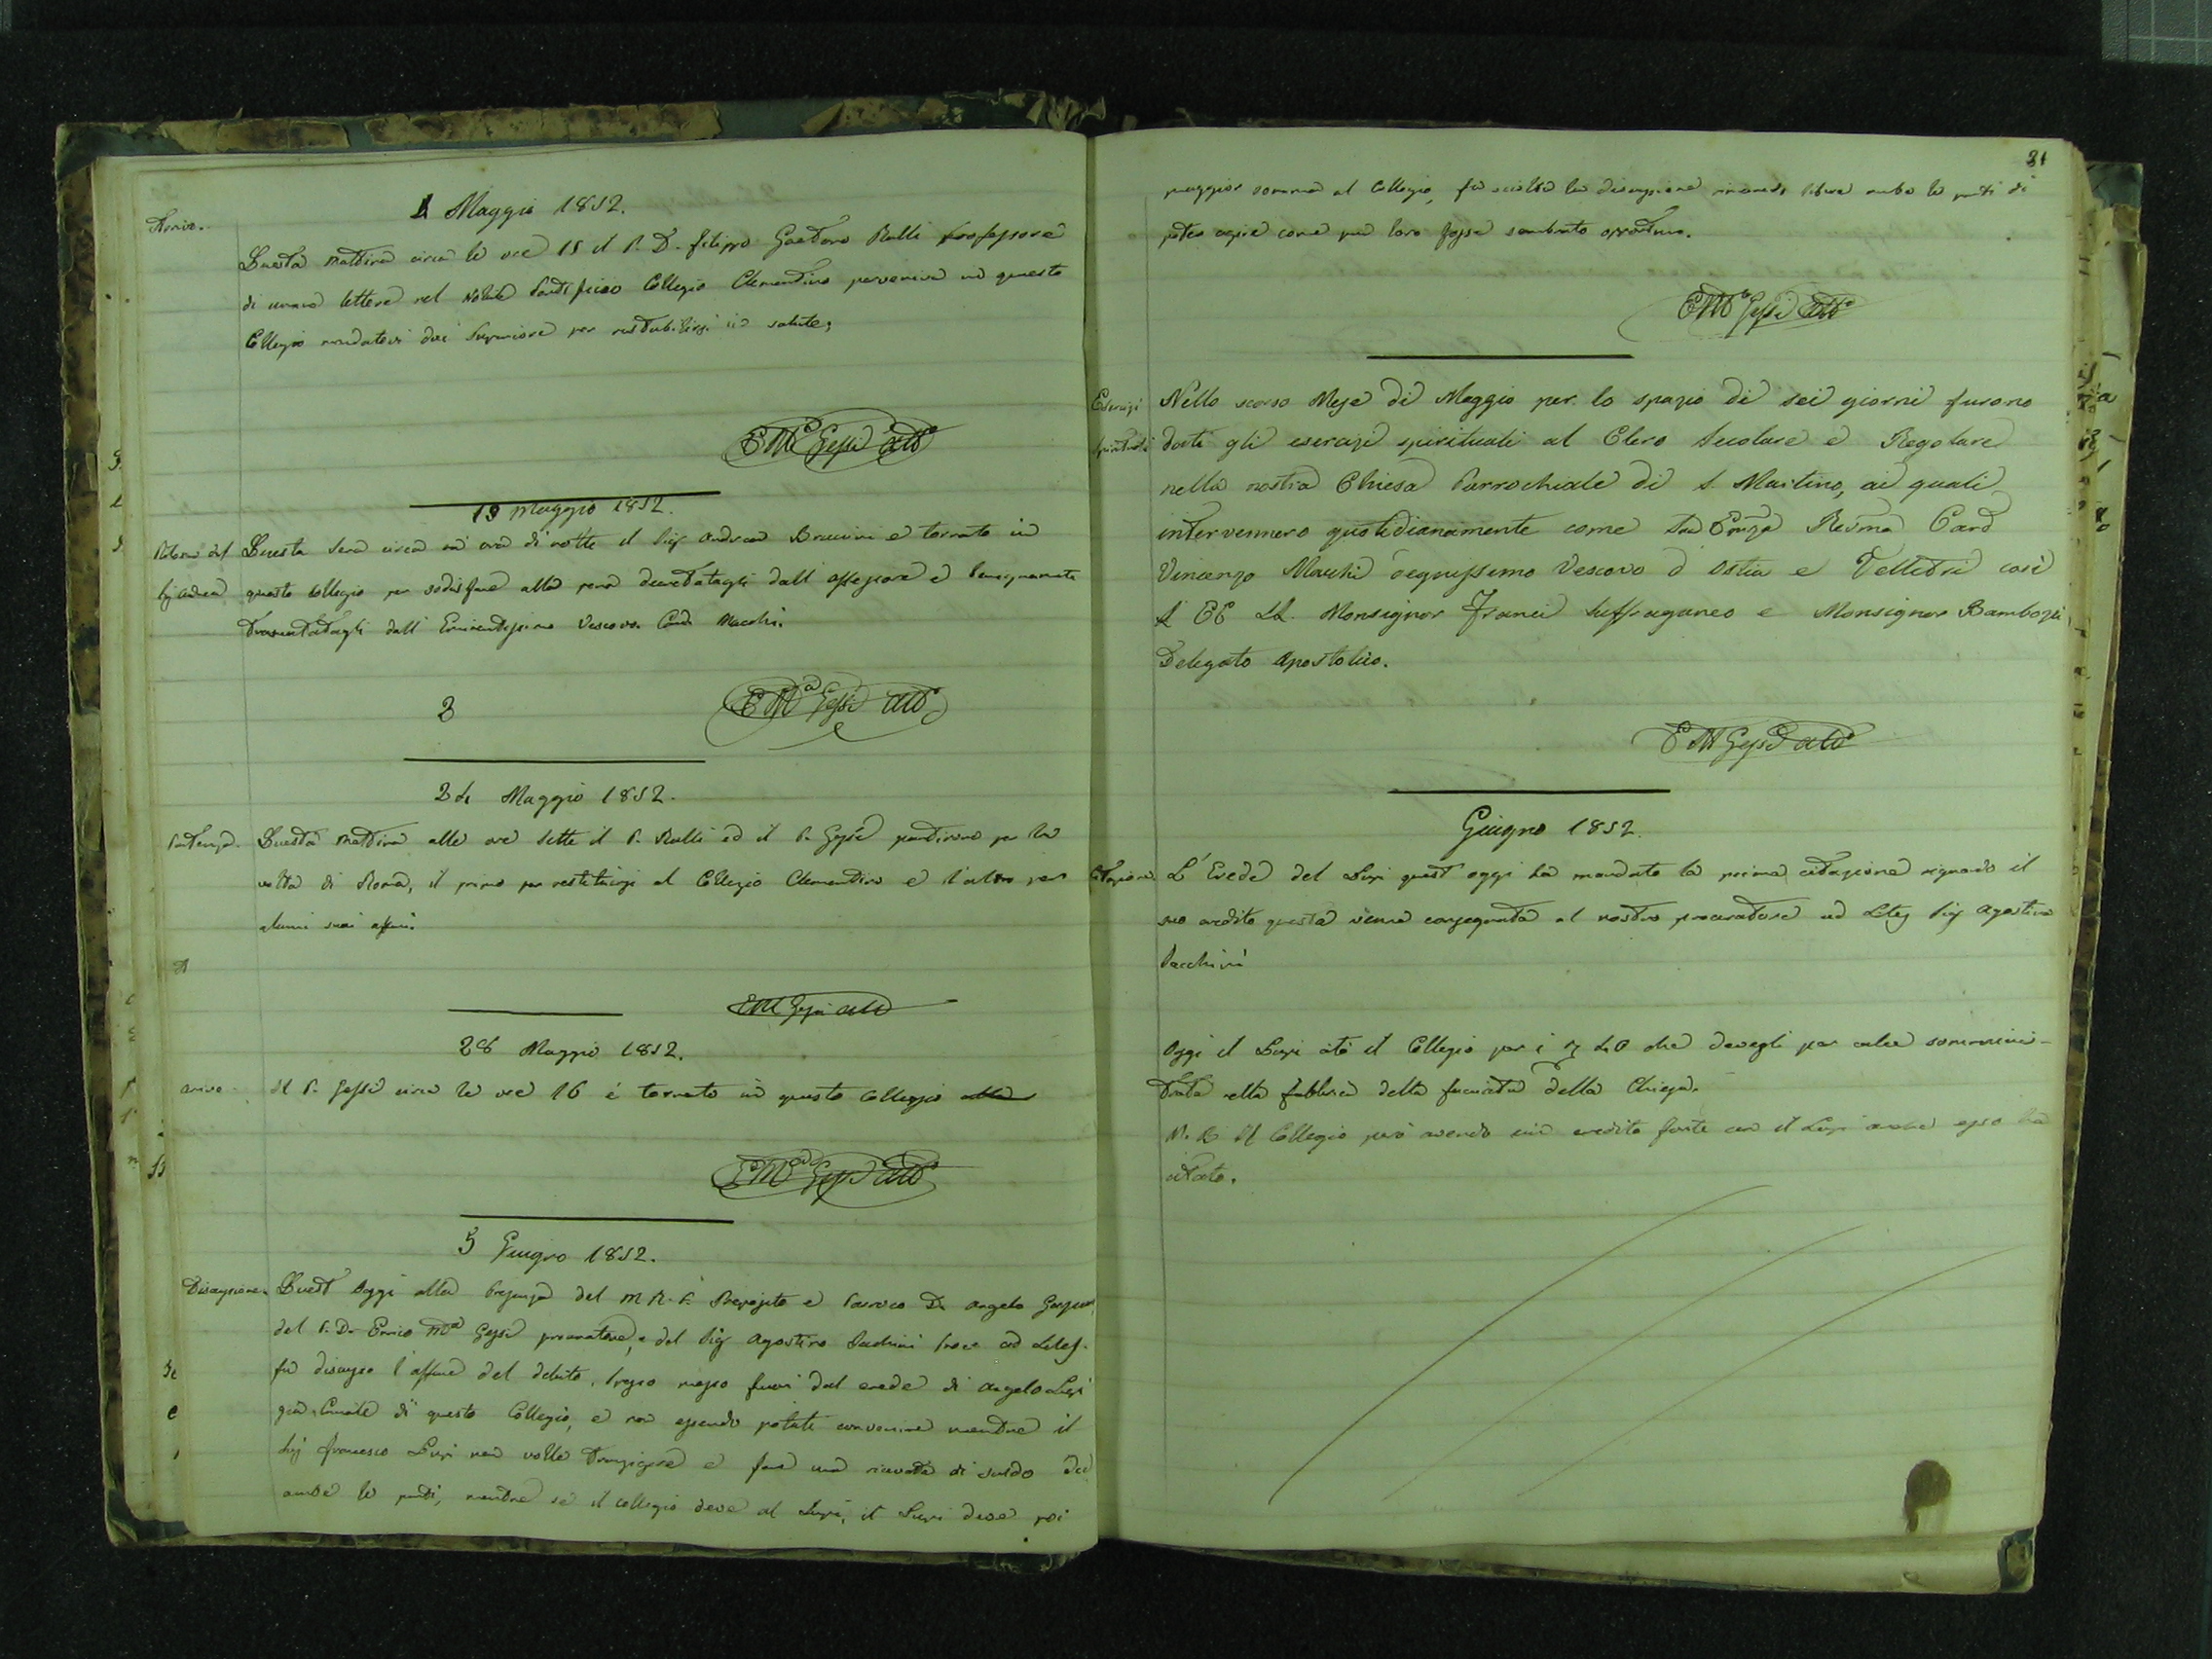 1 Maggio 1852.
Arrivo.
Questa mattina circa le ore 15 il P. D. Filippo Gaetano Rolli Professore
di umane lettere nel Nobile Pontificio Collegio Clementino perveniva in questo
Collegio mandatovi dai Superiore per ristabilirsi in salute.
E Mª Gessi Attº
19 Maggio 1852.
Ritorno del Questa sera circa un' ora di notte il Sig Andrea Braccini è tornato in
Sig Andrea questo Collegio per sodisfare alla pena decretatagli dall' Assessore e benignamente
dall' Eminentissimo Vescovo Card Macchi.
2 E Mª Gessi Attº
24 Maggio 1852.
Partenza. Questa mattina alle ore sette il P. Rolli ed il P. Gessi partirono per la
volta di Roma, il primo per restituirsi al Collegio Clementino e l'altro per
alcuni suoi affari.
A
E M Gessi Attº
28 Maggio 1852.
arrivo. Il P. Gessi circa le ore 16 è tornato in questo Collegio alle
E Mª Gessi Attº
5 Giugno 1852.
Discussione. Quest' oggi alla presenza del M. R. P. Preposito e Parroco D. Angelo
del P. D. Enrico Mª Gessi procuratore, e del Sig Agostino Sacchini Proc ad Lites.
fù discusso l'affare del debito, messo fuori dal erede di Angelo Lupi
già di questo Collegio, e non essendo potuti convenire mentre il
Sig Francesco Lupi non volle transigere e fare una ricevuta di saldo da
ambe le parti, mentre se il Collegio deve al Lupi, il Lupi deve poi
31
maggior somma al Collegio, fù sciolta la discussione rimanendo libere ambe le parti di
poter agire come più loro fosse sembrato opportuno.
E Mª Gessi Attº
Esercizi Nello scorso Mese di Maggio per lo spazio di sei giorni furono
Spirituali dati gli esercizi spirituali al Clero Secolare e Regolare
nella nostra Chiesa Parrochiale di S. Martino, ai quali
intervennero quotidianamente come Sua Emza Revma Card
Vincenzo Macchi degnissimo Vescovo d' Ostia e Velletri così
L EE LL. Monsignor Franci Suffraganeo e Monsignor Bambozzi
Delegato Apostolico.
E M Gessi Attº
Giugno 1852.
Citazione L' Erede del Lupi quest' oggi ha mandato la prima citazione riguardo il
suo credito questa venne consegnata al nostro procuratore ad Lites Sig Agostino
Sacchini
Oggi il Lupi citò il Collegio per i 40 che devegli per calce sommini-
strata nella fabbrica della facciata della Chiesa.
N. B. Il Collegio però avendo un credito forte con il Lupi anche esso ha
citato.